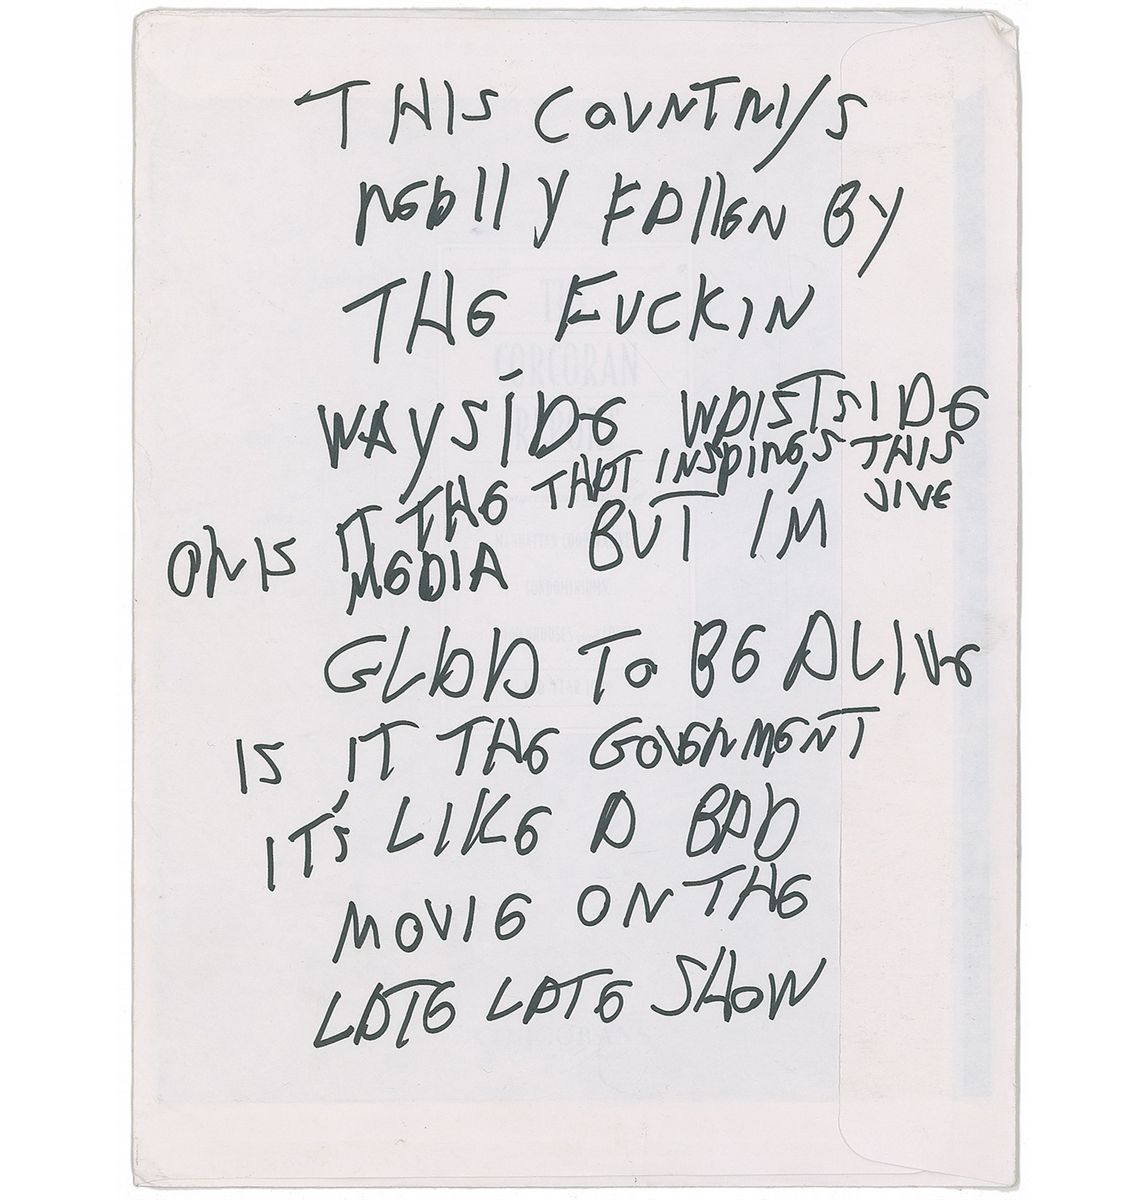 THIS COUNTRY'S
REALLY FALLEN BY
THE FUCKIN
WAYSIDE WAISTSIDE
OR IS IT THE THAT INSPIRES THIS
MEDIA BUT I'M JIVE
GLAD TO BE ALIVE
IS IT THE GOVERNMENT
IT'S LIKE A BAD
MOVIE ON THE
LATE LATE SHOW
THE
CORCORAN
REPORT
CONDOMINIUMS